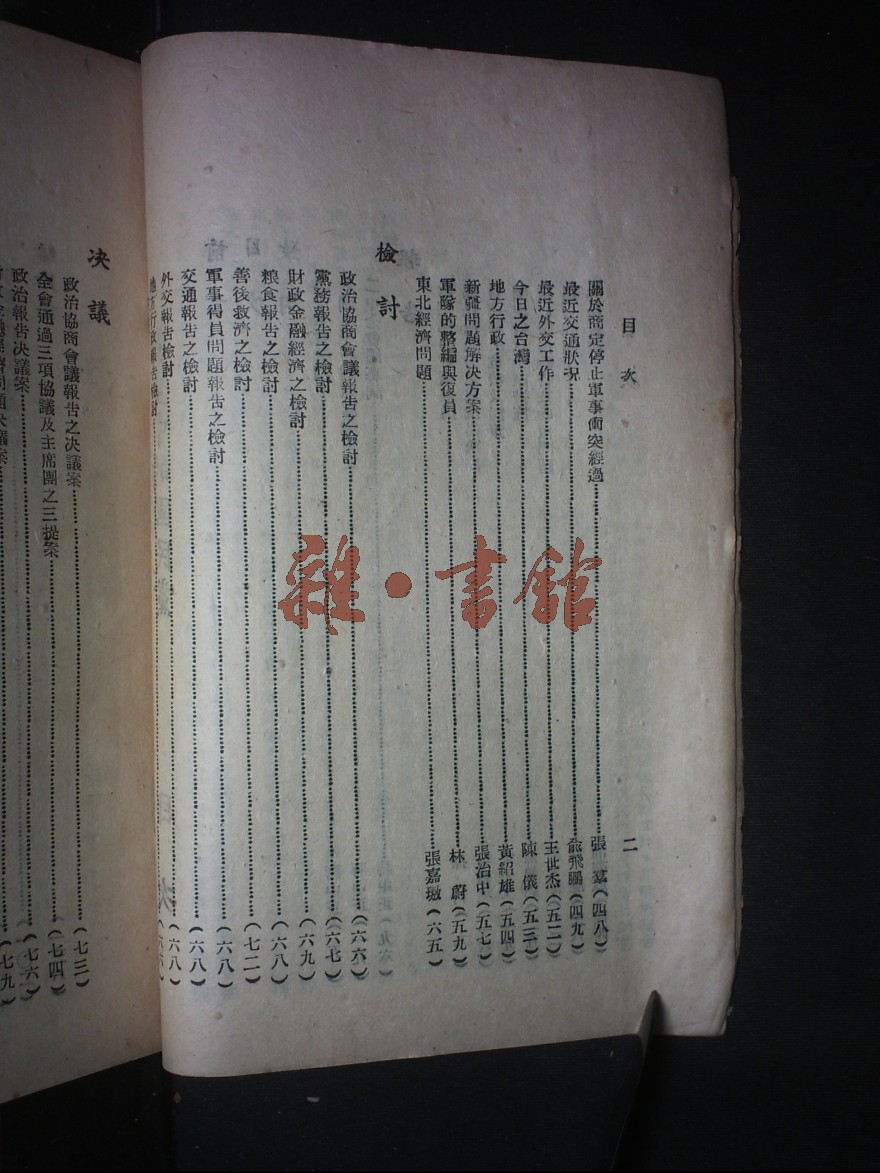 目次
二
關於商定停止軍事衝突經過……張羣(四八)
最近交通狀况……俞飛鵬(四九)
最近外交工作……王世杰(五二)
今日之台灣……陳儀(五三)
地方行政……黃紹雄(五四)
新疆問題解决方案……張治中(五七)
軍隊的整編與復員……林蔚(五九)
東北經濟問題……張嘉璈(六五)
檢討
政治協商會議報告之檢討……(六六)
黨務報告之檢討……(六七)
財政金融經濟之檢討……(六九)
粮食報告之檢討……(六八)
善後救濟之檢討……(七二)
軍事得員問題報告之檢討……(六八)
交通報告之檢討……(六八)
外交報告檢討……(六八)
地方行政報告檢討……(六六)
决議
政治協商會議報告之决議案……(七三)
全會通過三項協議及主席團之三提案……(七四)
政治報告决議案……(七六)
問題决議案……(七九)
雜·書館